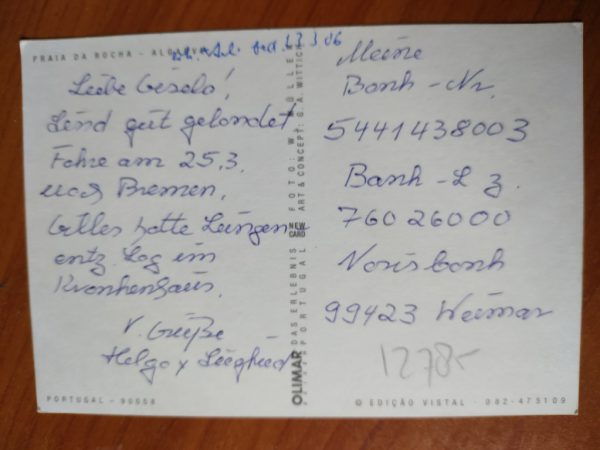 PRAIA DA ROCHA - ALGARVE
17.3.06
Liebe Gisela!
Sind gut gelandet
Fahre am 25.3.
nach Bremen,
hatte Lungen
entz. Lag im
Krankenhaus.
V. Grüße
Helga + Siegfried
PORTUGAL - 90058
OLIMAR DAS ERLEBNIS PORTUGAL
NEW CARD
FOTO: W.
ART & CONCEPT: G.A. WITTICH
Meine
Bank-Nr.
5441438003
Bank-Lz.
76026000
Norisbank
99423 Weimar
1278,-
© EDIÇÃO VISTAL - 082-473109